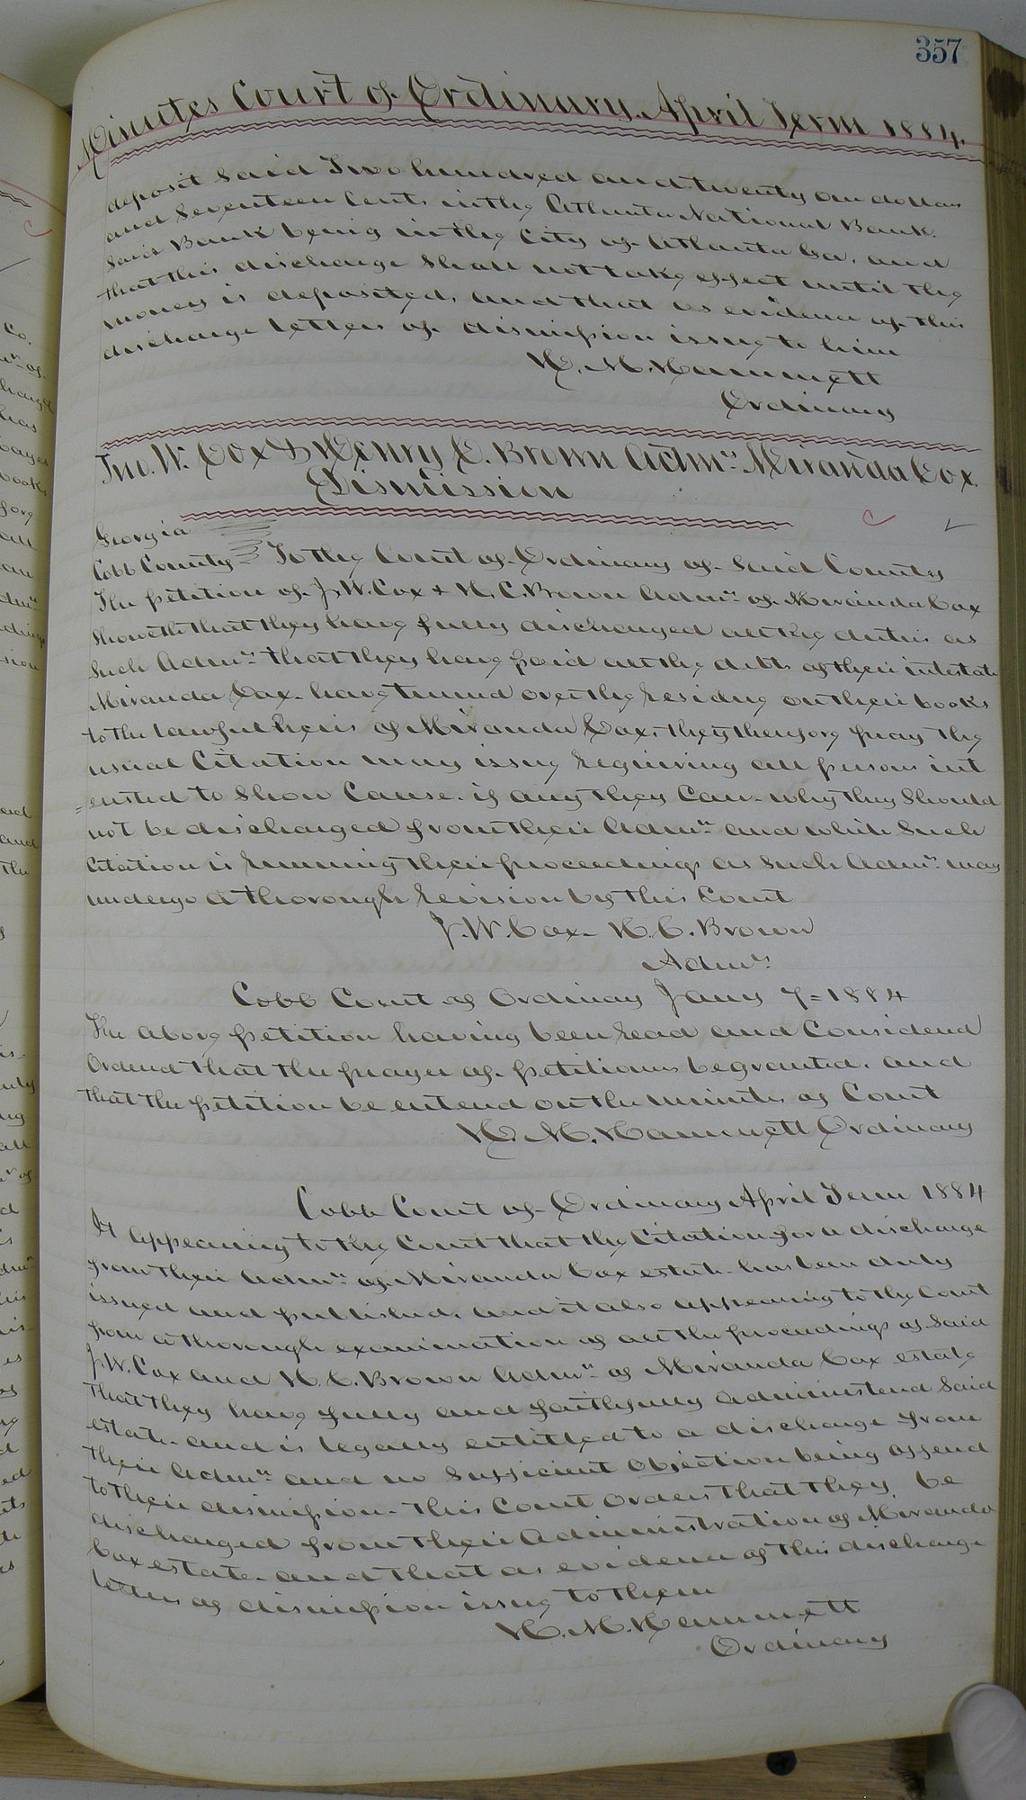 357
Minutes Court of Ordinary April Term 1884.
deposit said Two hundred and twenty one dollars
and Seventeen Cents in the Atlanta National Bank.
Said Bank being in the City of Atlanta Ga, and
that this discharge shall not take effect until the
money is deposited, and that as evidence of this
discharge letters of dismission issue to him
H. M. Hammett
Ordinary
Jno. W. Cox & Henry C. Brown Admrs Miranda Cox
Dismission
Georgia
Cobb County To the Court of Ordinary of Said County
The petition of J. W. Cox & H. C. Brown Admrs of Miranda Cox
Showeth that they have fully discharged all the duties as
Such Admrs that they have paid all the debts of their intestate
Miranda Cox have turned over the residue on their books
to the lawful heirs of Miranda Cox, they therefore pray the
usual Citation may issue requiring all persons int
=erested to Show Cause if any they can why they should
not be discharged from their Admn and while Such
Citation is running their proceedings as Such Admrs may
undergo a thorough revision by this Court
J. W. Cox H. C. Brown
Admrs
Cobb Court of Ordinary Jany 7=1884
The above petition having been read and Considerd
Ordered that the prayer of petitioners be granted, and
that the petition be enterd on the minutes of Court
H. M. Hammett Ordinary
Cobb Court of Ordinary April Term 1884
It appearing to the Court that the Citation for a discharge
from their Admn of Miranda Cox estate has been duly
issued and published, and it also appearing to the Court
from a thorough examination of all the proceedings of Said
J. W. Cox and H. C. Brown Admrs of Miranda Cox estate
that they have fully and faithfully administerd Said
estate and is legally entitled to a discharge from
their Admn and no Sufficient Objection being offerd
to their dismission. This Court orders that they be
discharged from their Administration of Miranda
Cox estate and that as evidence of this discharge
letters of dismission issue to them
H. M. Hammett
Ordinary